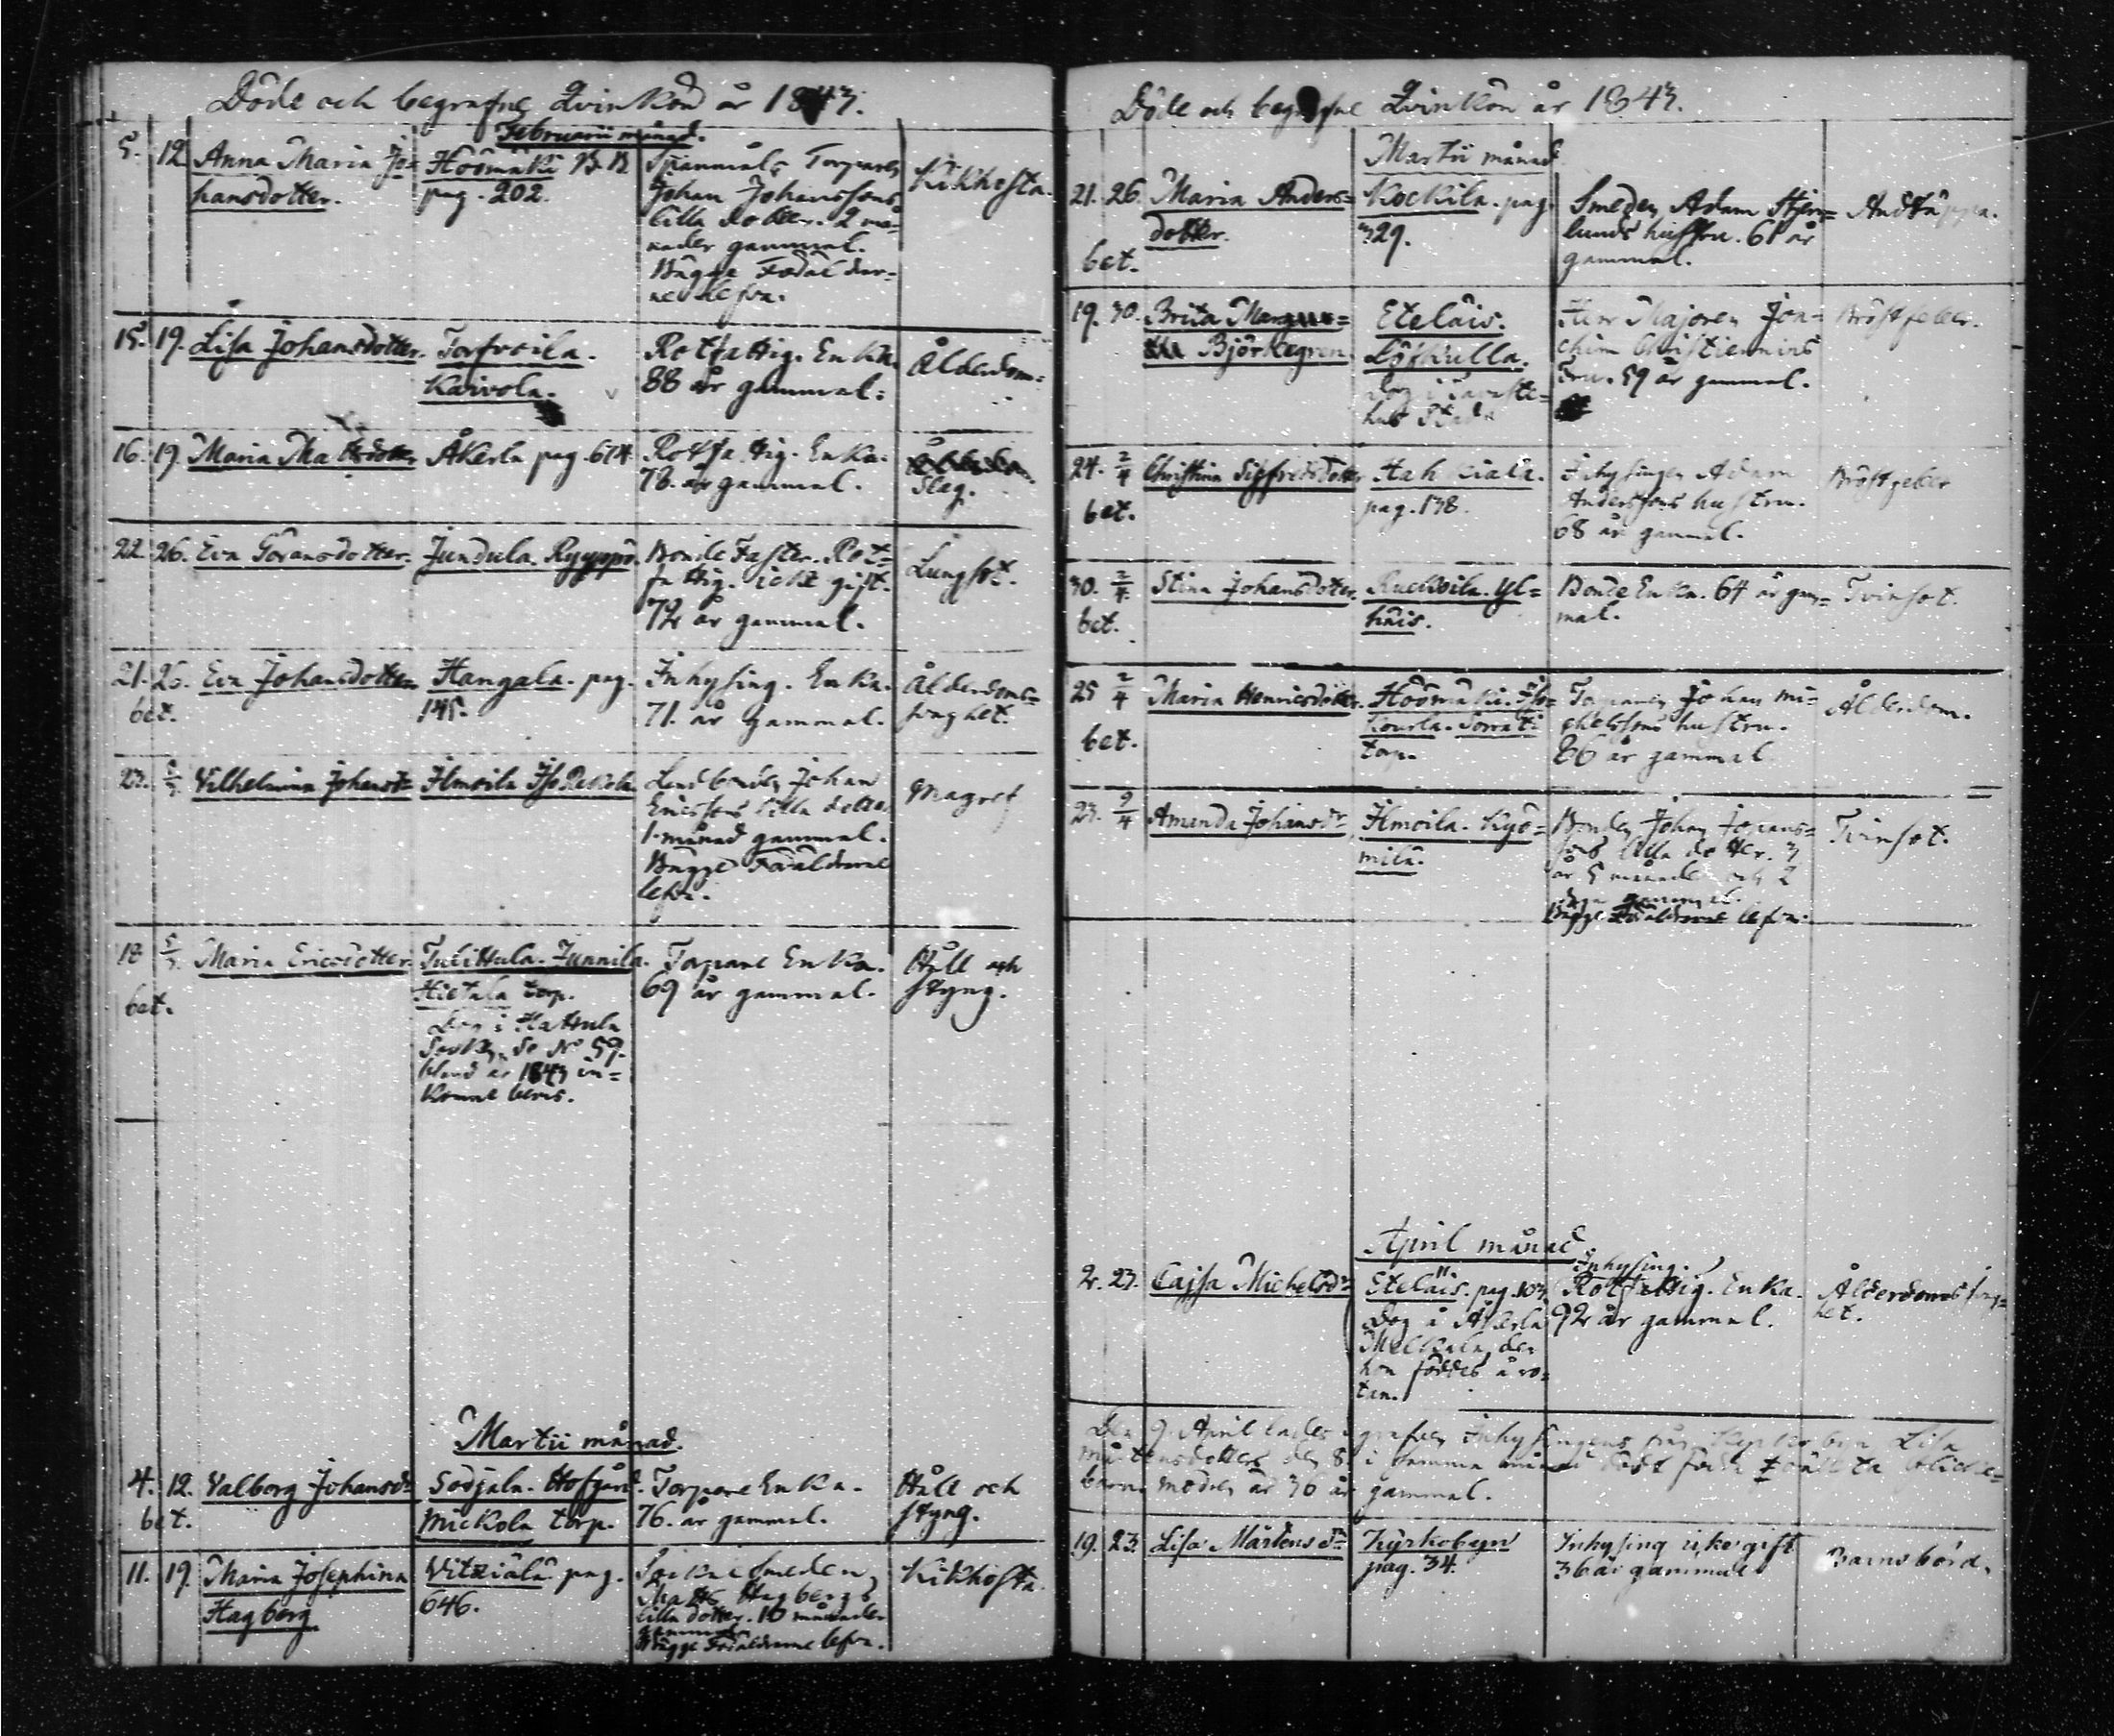 Döde och begrafne Qvinkön år 1843.
Februarii månad.
5. 12 Anna Maria Jo=
hansdotter.
Hoömäki
pag. 202.
Spanmåls Torparen
Johan Johanssons
lilla dotter. 2 må=
nader gammal.
Bägge Föräldrar=
ne lefva.
Kikhosta.
15. 19. Lisa Johansdotter.
Torfvoila.
Kaivola.
Rotfattig. Enka.
88 år gammal.
Ålderdom.
16. 19. Maria Mattsdotter
Åkerla pag. 674
Rotfattig. Enka.
78. år gammal.
Slag.
22. 26. Eva Göransdotter.
Jundula. Ryyppö.
Bonde Faster. Rot=
fattig. icke gift.
72 år gammal.
Lungsot.
21. 26. Eva Johansdotter
bet.
Hangala. pag.
145.
Inhysing. Enka.
71. år gammal.
Ålderdoms=
svaghet.
23. 5/3. Vilhelmina Johansdr
Ilmoila Iso Rekola
Landbonden Johan
Ericssons lilla dotter
1. månad gammal.
Bägge Föräldrarne
lefva.
Magref
18 5/3. Maria Ericsdotter.
bet.
Tulittula. Junnila.
Hietala torp.
Dog i Hattula
Sockn. Se No 59.
bland år 1843 in=
komne bevis.
Torpare Enka.
69 år gammal.
Håll och
styng.
Martii månad.
4. 12. Valborg Johansdr
bet.
Sodjala. Hofgård.
Mickola torp.
Torpare Enka.
76. år gammal.
Håll och
styng.
11. 19. Maria Josephina
Hagberg
Vitziälä. pag.
646.
Sockne Smeden
Matts Hagbergs
lilla dotter. 10 månader
gammal.
Bägge Föräldrarne lefva.
Kikhosta.
Döde och begrafne Qvinkön år 1843.
Martii månad
21. 26. Maria Anders=
dotter.
bet.
Kockila. pag.
329.
Smeden Adam Stjern=
lunds hustru. 61 år
gammal.
Andtäppa.
19. 30. Brita Margare=
tha Björkegren.
Eteläis.
Löfkulla.
Dog i Tavaste=
hus Stad.
Herr Majoren Joa=
chim Christiernins
Fru. 59 år gammal.
Bröstfeber.
24. 2/4 Christina Sigfredsdotter
bet.
Hahkiala.
pag. 138.
Inhysingen Adam
Anderssons hustru.
68 år gammal.
Bröstfeber
30. 2/4. Stina Johansdotter.
bet.
Ruckoila. Yl=
häis.
Bonde Enka. 64 år gam=
mal.
Tvinsot.
25 2/4 Maria Henricsdotter.
bet.
Hoömäki. Iso=
Kourla. Torvati
torp.
Torparen Johan Mi=
chelssons hustru.
86 år gammal
Ålderdom.
23. 9/4 Amanda Johansdr
Ilmoila. Kyö=
milä.
Bonden Johan Johans=
sons lilla dotter. 3
år 5 månader och 2
dagar gammal.
Bägge Föräldrarne lefva.
Tvinsot.
April månad
2. 23. Cajsa Michelsdr
Eteläis. pag. 103
Dog i Åkerla
Melkala, der
hon föddes å ro=
tan.
Inhysing.
Rotfattig. Enka.
92 år gammal.
Ålderdoms svag=
het.
Den 9. April lades i grafven Inhysingens från Kyrkobyn Lisa
Mårtensdotters den 8. i samma månad född
barn. modren är 36 år gammal.
19. 23. Lisa Mårtensdr
Kyrkobyn
pag. 34.
Inhysing icke gift
36 år gammal
Barnsbörd.